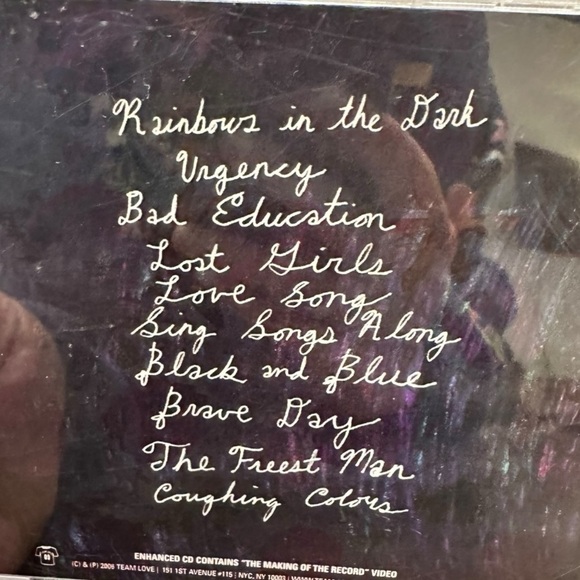 Rainbows in the Dark
Urgency
Bad Education
Lost Girls
Love Song
Sing Songs Along
Black and Blue
Brave Day
The Freest Man
Coughing Colors
ENHANCED CD CONTAINS "THE MAKING OF THE RECORD" VIDEO
(C) & (P) 2006 TEAM LOVE | 151 1ST AVENUE #115 | NYC, NY 10003 |